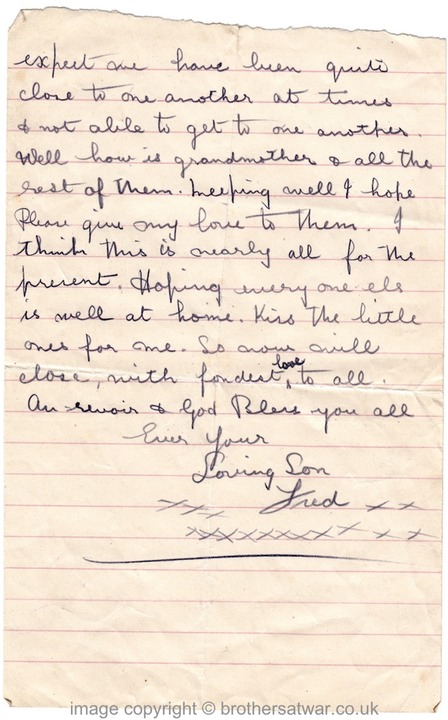 expect we have been quite
close to one another at times
& not able to get to one another.
Well how is grandmother & all the
rest of them. keeping well I hope
Please give my love to them. I
think this is nearly all for the
present. Hoping every one els
is well at home. Kiss the little
ones for me. So now will
close, with fondest love to all.
Au revoir & God Bless you all
Ever Your
Loving Son
xxx Fred x x
xxxxxxxxx x x
image copyright © brothersatwar.co.uk